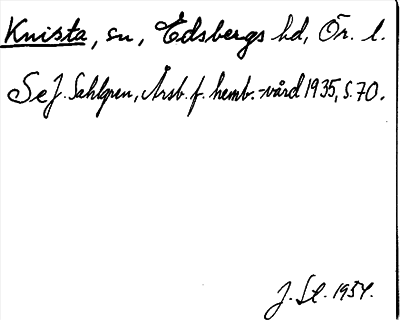 Knista, sn, Edsbergs hd, Ör. l.
Se J. Sahlgren, Årsb. f. hemb.-vård 1935, s. 70.
J. St. 1954.